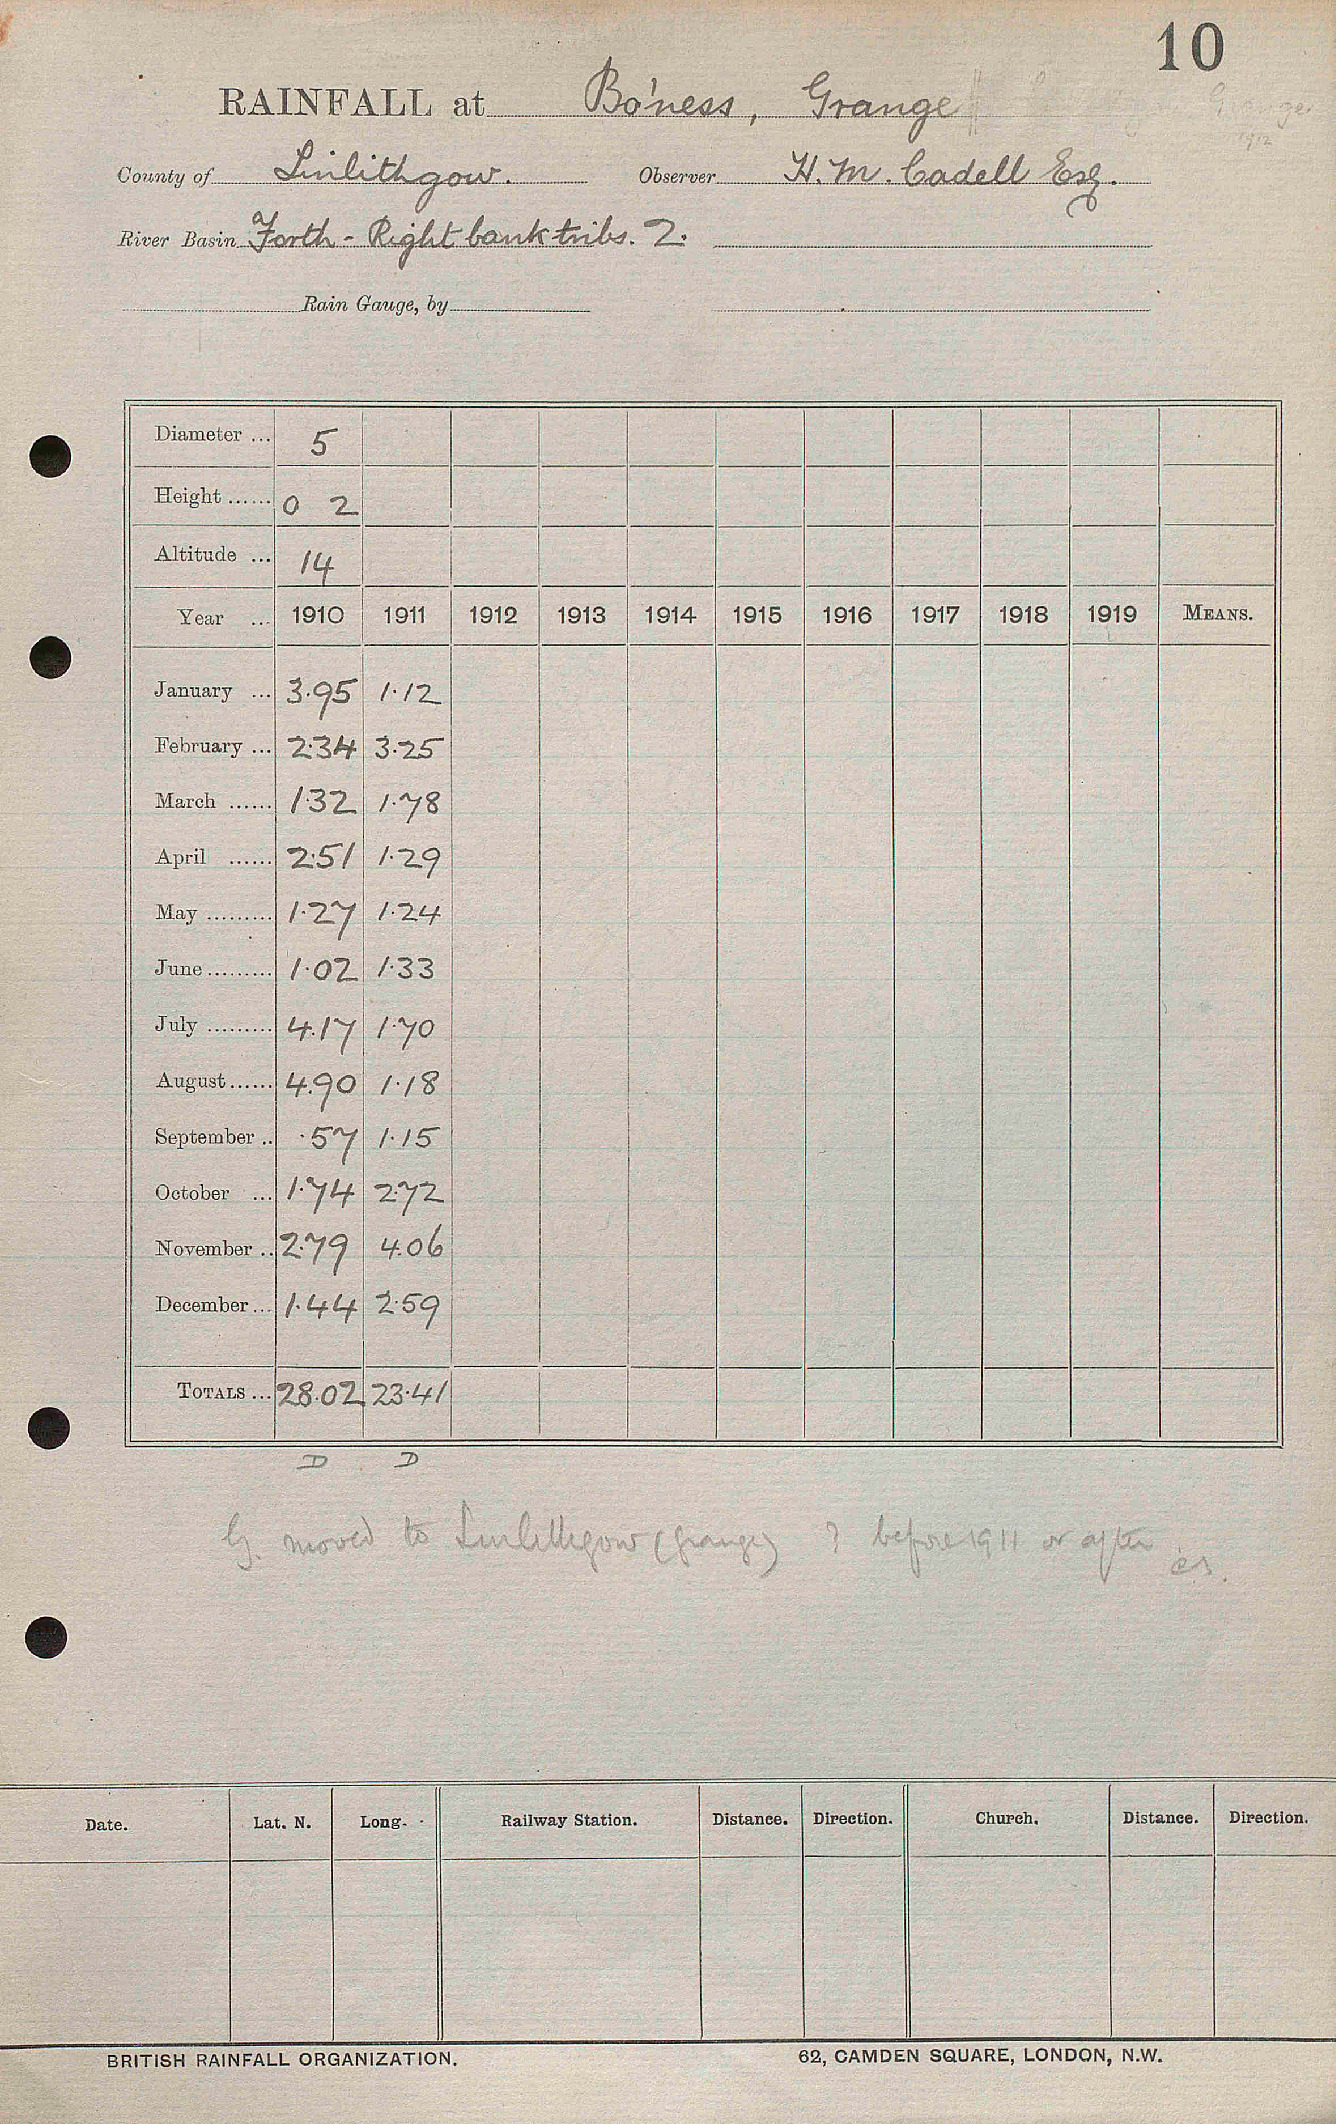 10
RAINFALL at Bo'ness, Grange Grange
1912
County of Linlithgow. Observer H. M. Cadell Esq.
River Basin Forth - Right bank tribs. 2.
Rain Gauge, by
Diameter ... 5
Height ...... 0 2
Altitude ... 14
Year ... 1910 1911 1912 1913 1914 1915 1916 1917 1918 1919 MEANS.
January ... 3.95 1.12
February ... 2.34 3.25
March ...... 1.32 1.78
April ...... 2.51 1.29
May ......... 1.27 1.24
June ......... 1.02 1.33
July ......... 4.17 1.70
August ...... 4.90 1.18
September .. .57 1.15
October ... 1.74 2.72
November .. 2.79 4.06
December ... 1.44 2.59
TOTALS ... 28.02 23.41
D D
G. moved to Linlithgow (Grange) ? before 1911 or after
Date. Lat. N. Long. Railway Station. Distance. Direction. Church. Distance. Direction.
BRITISH RAINFALL ORGANIZATION. 62, CAMDEN SQUARE, LONDON, N.W.